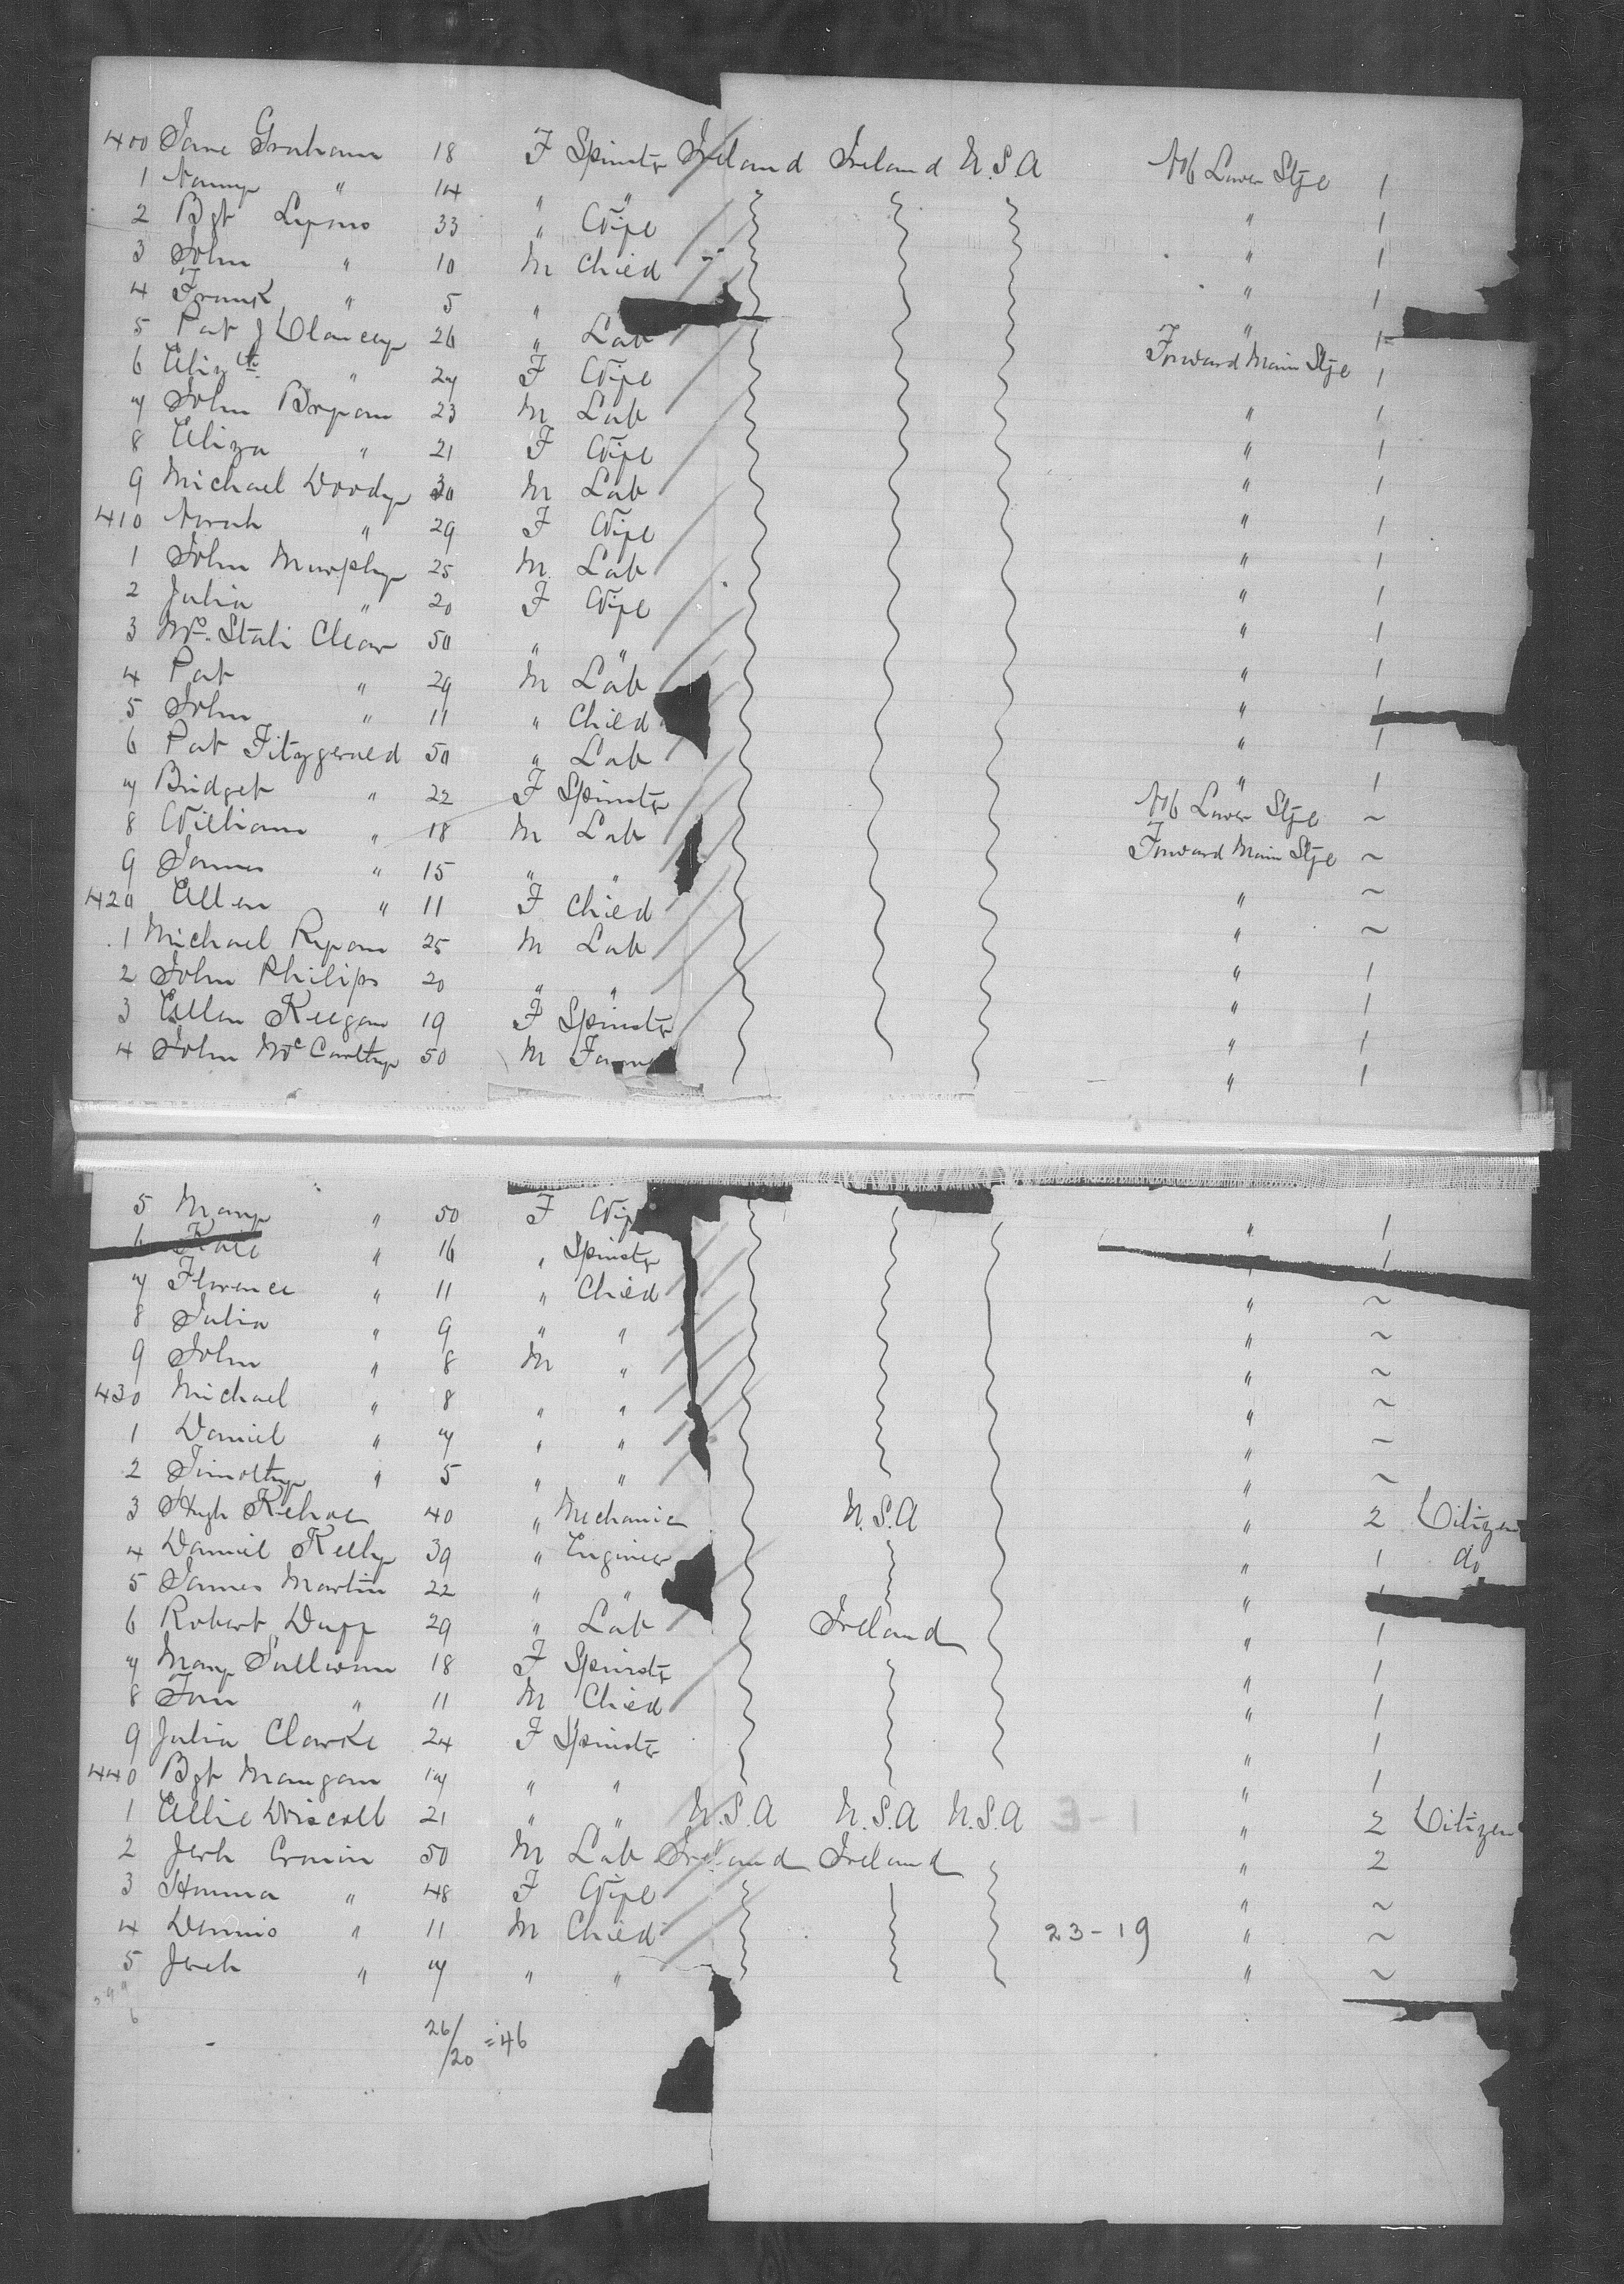 400 Jane Graham 18 F Spinster Ireland Ireland U.S.A Aft Lower Stge 1
1 Nanny " 14 " " " 1
2 Bgt Lyons 33 " Wife " 1
3 John " 10 M Child " 1
4 Frank " 5 " " 1
5 Pat J Clancy 26 " Lab " 1
6 Elizth " 24 F Wife Forward Main Stge 1
7 John Bryan 23 M Lab " 1
8 Eliza " 21 F Wife " 1
9 Michael Doody 30 M Lab " 1
410 Norah " 29 F Wife " 1
1 John Murphy 25 M Lab " 1
2 Julia " 20 F Wife " 1
3 Clear 50 " " " 1
4 Pat " 29 M Lab " 1
5 John " 11 " Child " 1
6 Pat Fitzgerald 50 " Lab " 1
7 Bridget " 22 F Spinster Aft Lower Stge ~
8 William " 18 M Lab Forward Main Stge ~
9 James " 15 " " " ~
420 Ellen " 11 F Child " ~
1 Michael Ryan 25 M Lab " 1
2 John Philips 20 " " " 1
3 Ellen Keegan 19 F Spinster " 1
4 John McCarthy 50 M Farmer " 1
5 Mary " 50 F Wife " 1
6 Kate " 16 " Spinster 1
7 Florence " 11 " Child " ~
8 Julia " 9 " " " ~
9 John " 8 M " " ~
430 Michael " 8 " " " ~
1 Daniel " 7 " " " ~
2 Timothy " 5 " " " ~
3 Hugh Kehoe 40 " Mechanic U.S.A " 2 Citizen
4 Daniel Kelly 39 " Engineer " 1 do
5 James Martin 22 " " "
6 Robert Duff 29 " Lab Ireland " 1
7 Mary Sullivan 18 F Spinster " 1
8 Tom " 11 M Child " 1
9 Julia Clarke 24 F Spinster " 1
440 Bgt Mangan 17 " " " 1
1 Ellie Driscoll 21 " " U.S.A U.S.A U.S.A 3-1 " 2 Citizen
2 Jerh Cronin 50 M Lab Ireland Ireland " 2
3 Hanna " 48 F Wife " ~
4 Dennis " 11 M Child 23-19 " ~
5 Jerh " 7 " " " ~
6
26/20 = 46